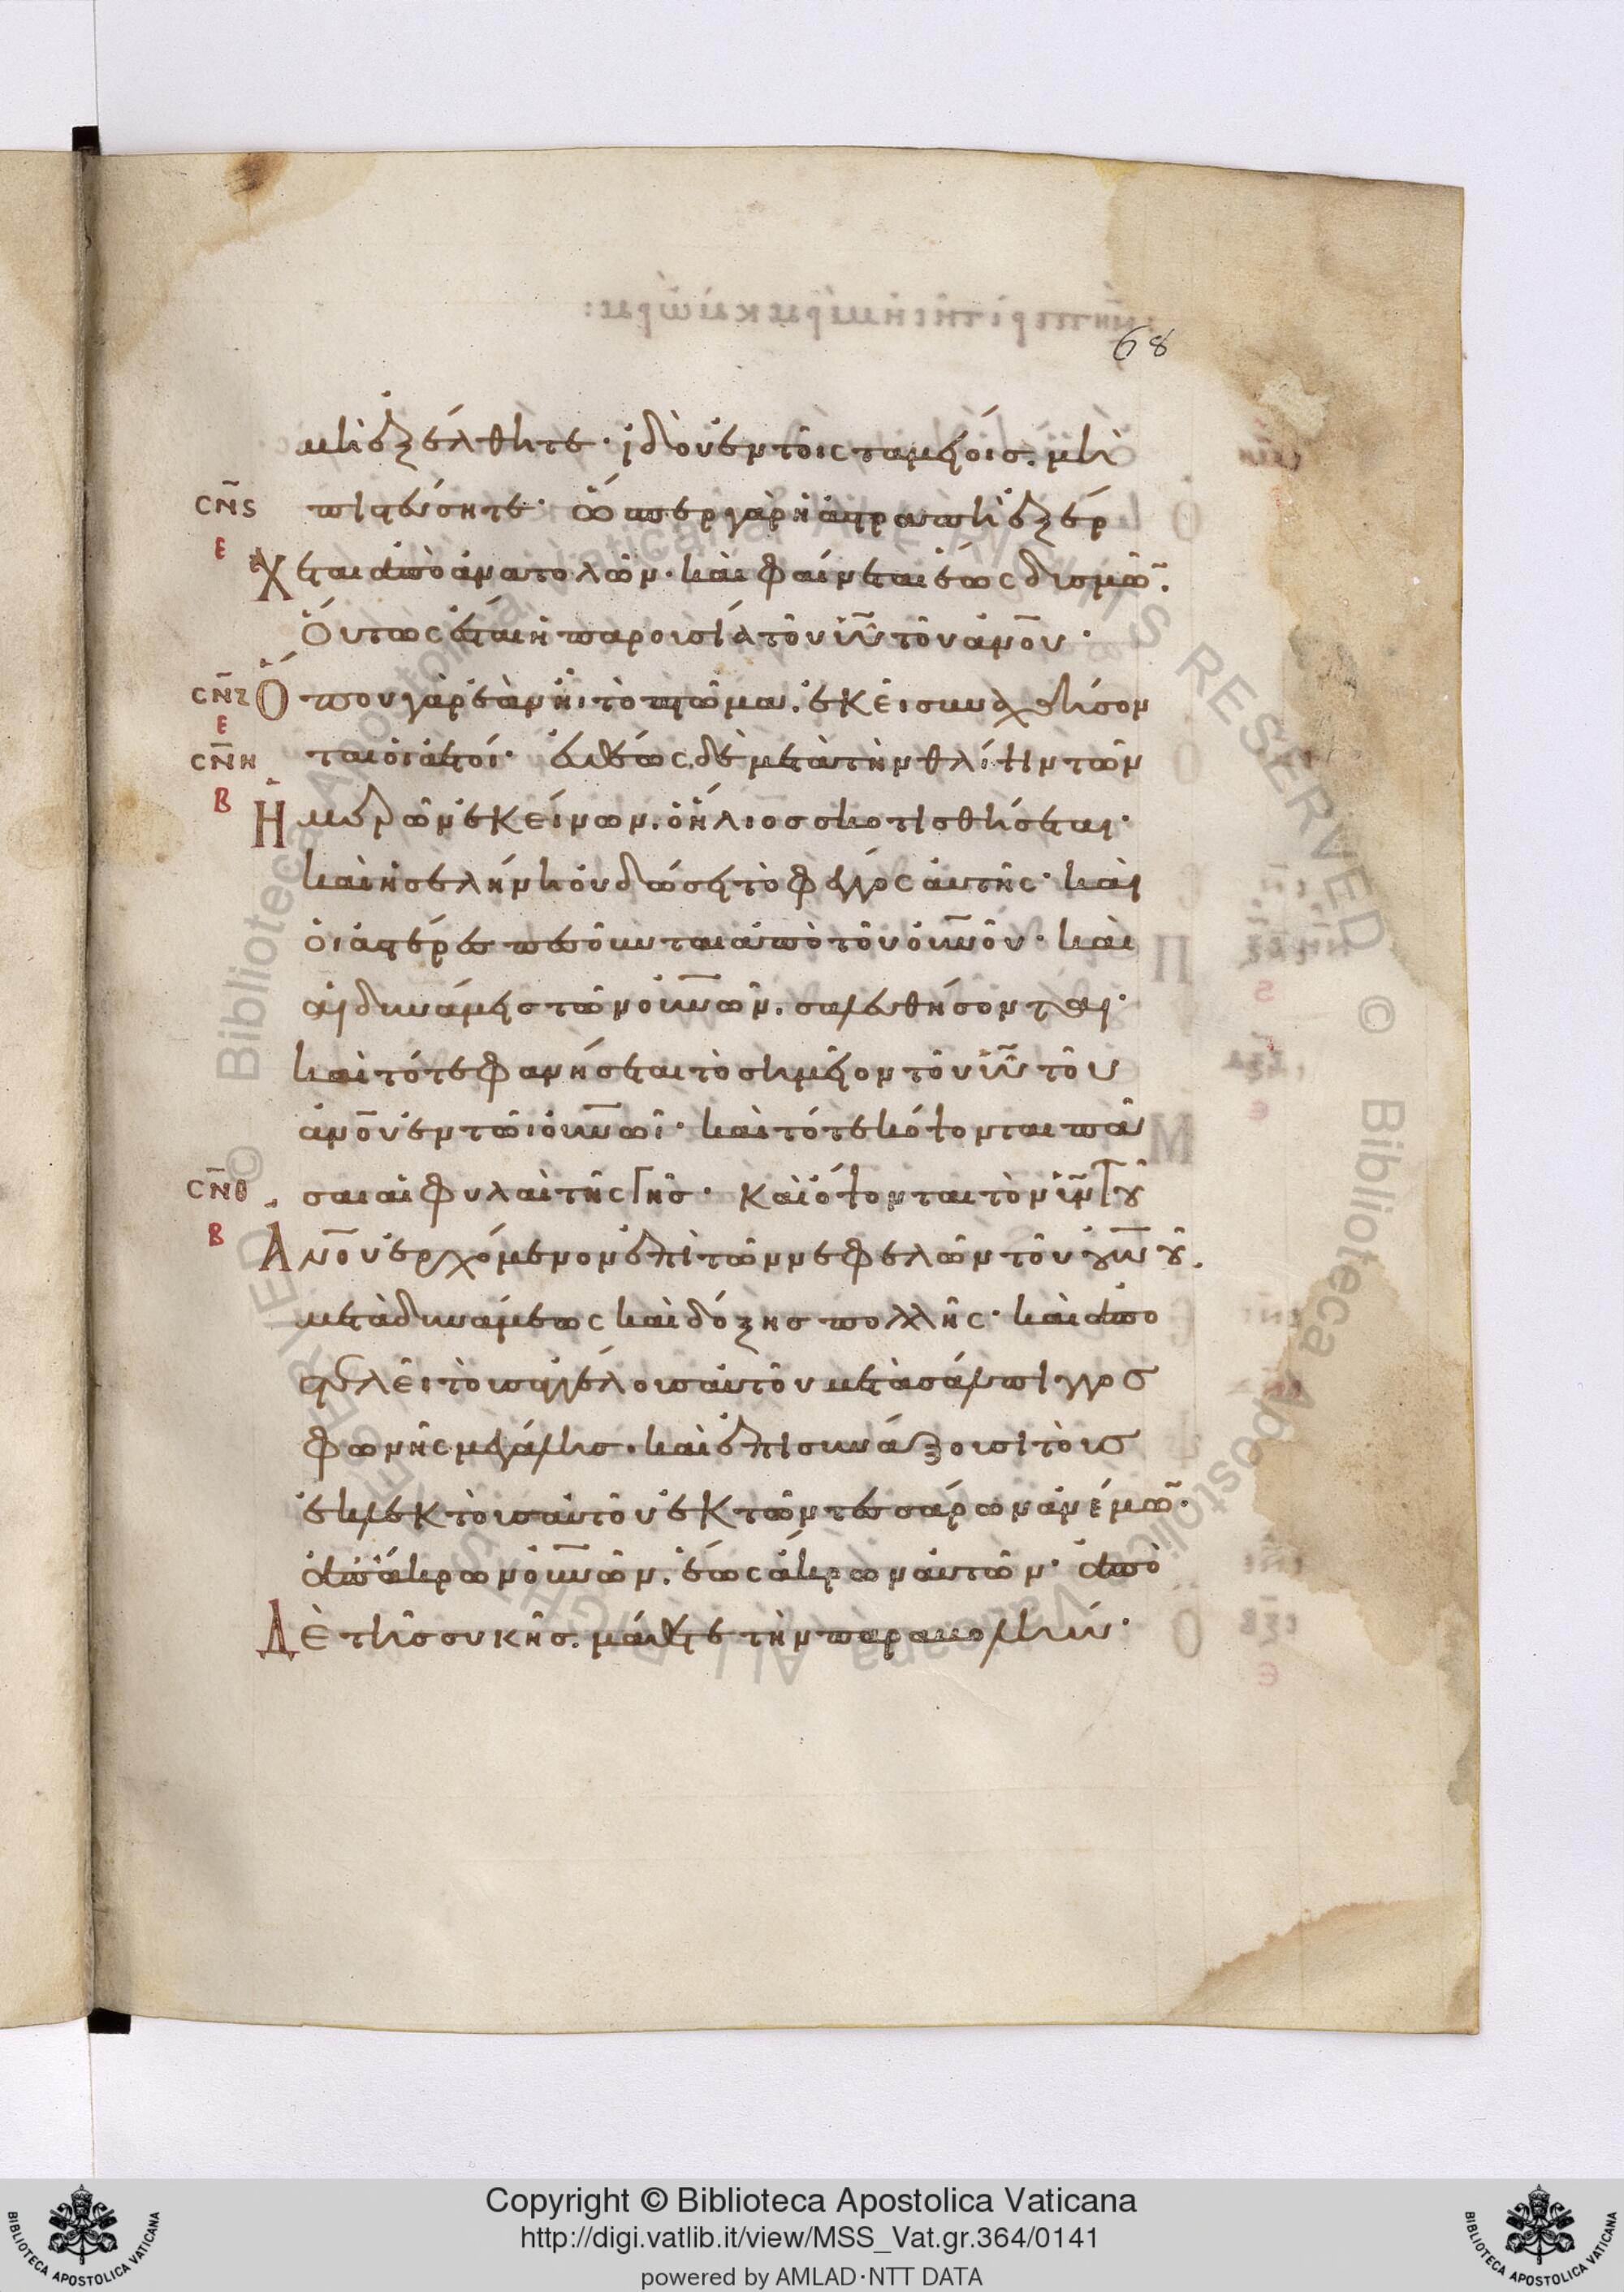 68
μὴ ἐξέλθητε· ἰδοὺ ἐν τοῖς ταμείοις. μὴ
CN̄S πιστεύσητε· ὥσπερ γὰρ ἡ ἀστραπὴ ἐξέρ
Ε
χεται ἀπὸ ἀνατολῶν· καὶ φαίνεται ἕως δυσμῶ̄.
Οὕτως ἔσται ἡ παρουσία τοῦ ῡῡ τοῦ ἀν̄ου·
CN̄Z Ὅπου γὰρ ἐὰν ἦι τὸ πτῶμα. ἐκεῖ συναχθήσον
Ε
CN̄H ται οἱ ἀετοί· εὐθέως δὲ μετὰ τὴν θλίψιν τῶν
Β
Ἡμερῶν ἐκείνων. ὁ ἥλιος σκοτισθήσεται·
καὶ ἡ σελήνη οὐ δώσει τὸ φέγγος αὐτῆς· καὶ
οἱ ἀστέρες πεσοῦνται ἀπὸ τοῦ οὐν̄οῦ· καὶ
αἱ δυνάμεις τῶν οὐν̄ῶν. σαλευθήσονται·
καὶ τότε φανήσεται τὸ σημεῖον τοῦ ῡῡ τοῦ
ἀν̄ου ἐν τῶι οὐν̄ῶι· καὶ τότε κόψονται πᾶ
CN̄Θ σαι αἱ φυλαὶ τῆς γῆς· καὶ ὄψονται τὸν ῡν̄ τοῦ
Β
Ἀν̄ου ἐρχόμενον ἐπὶ τῶν νεφελῶν τοῦ οὐν̄οῦ.
μετὰ δυνάμεως καὶ δόξης πολλῆς· καὶ ἀπο
στελεῖ τοὺς ἀγγέλους αὐτοῦ μετὰ σάλπιγγος
φωνῆς μεγάλης. καὶ ἐπισυνάξουσι τοὺς
ἐκλεκτοὺς αὐτοῦ ἐκ τῶν τεσσάρων ἀνέμῶ̄.
ἀπ' ἄκρων οὐν̄ῶν. ἕως ἄκρων αὐτῶν· ἀπὸ
Δὲ τῆς συκῆς. μάθετε τὴν παραβολήν·
Copyright © Biblioteca Apostolica Vaticana
http://digi.vatlib.it/view/MSS_Vat.gr.364/0141
powered by AMLAD·NTT DATA
BIBLIOTECA APOSTOLICA VATICANA
BIBLIOTECA APOSTOLICA VATICANA